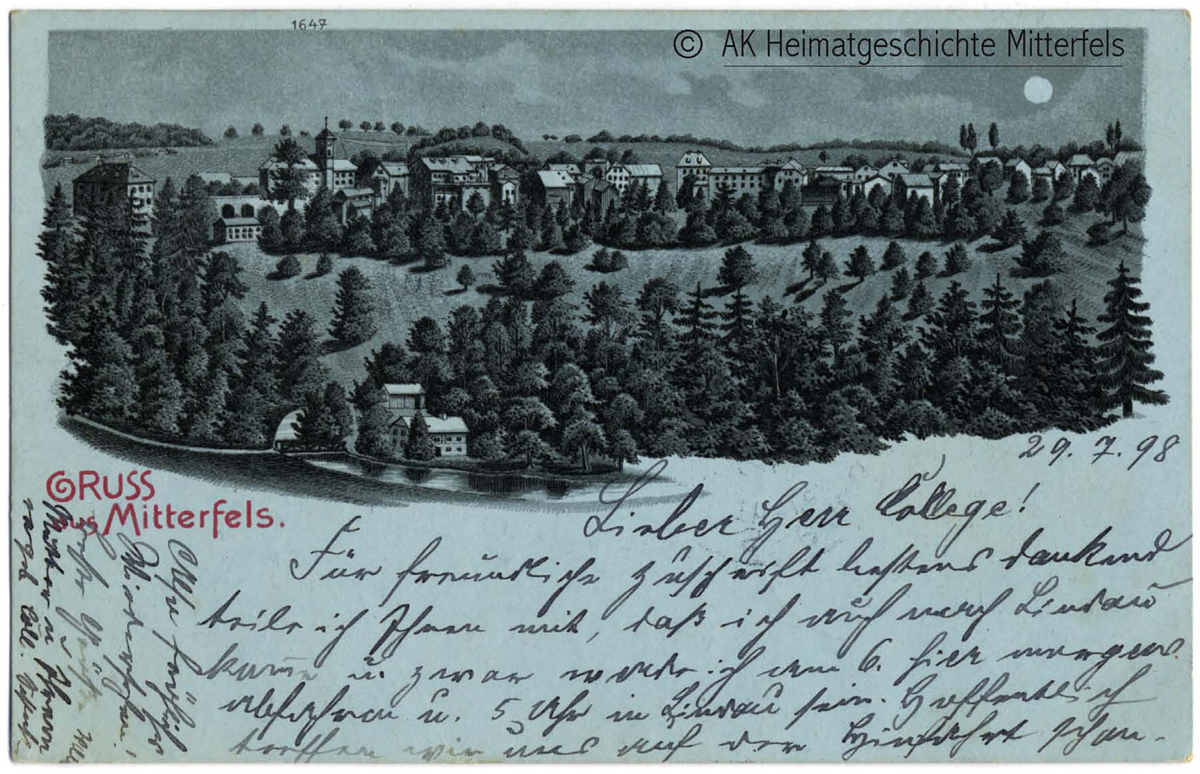 1647
© AK Heimatgeschichte Mitterfels
GRUSS
aus Mitterfels.
29. 7. 98
Lieber Herr College!
Für freundliche Zuschrift bestens dankend
teile ich Ihnen mit, daß ich auch nach Lindau
komme u. zwar werde ich am 6. hier morgens
abfahren u. 5 Uhr in Lindau sein. Hoffentlich
treffen wir uns auf der Hinfahrt schon.
Also fröhliches
Wiedersehen!